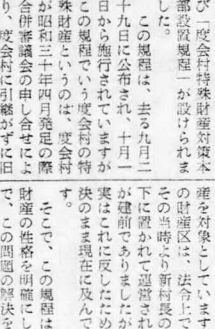 び「度会村特殊財産対策本
部設置規程」が設けられま
した。
この規程は、去る九月二
十九日に公布され、十月一
日から施行されていますが
この規程でいう度会村の特
殊財産というのは、度会村
が昭和三十年四月発足の際
合併審議会の申し合せによ
り、度会村に引継がずに旧
産を対象としています
の財産区は、法令上で
その当時より新村長の
下に置かれて運営され
が建前でありましたが
実はこれに反したため
決のまま現在に及んで
す。
そこで、この規程は
財産の性格を明確にし
で、この問題の解決を